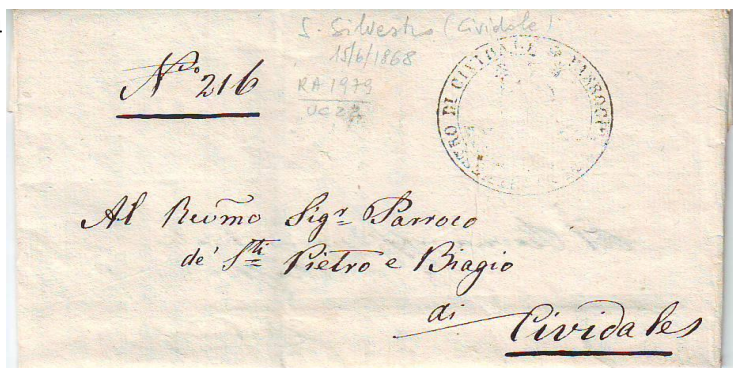 S. Silvestro (Cividale)
15/6/1868
N.o 216
RA 1979
DI CIVIDALE
PARROCI
Al Revmo Sigr Parroco
de' Sti Pietro e Biagio
di
Cividale